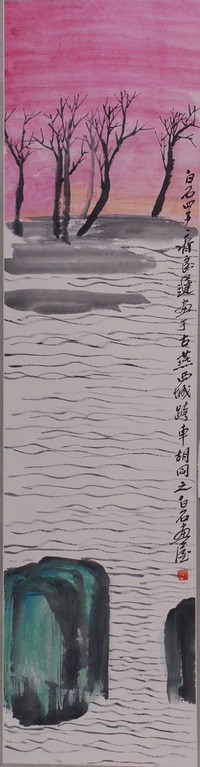 白石四子齊良遲畫于古燕西城跨車胡同之白石畫屋